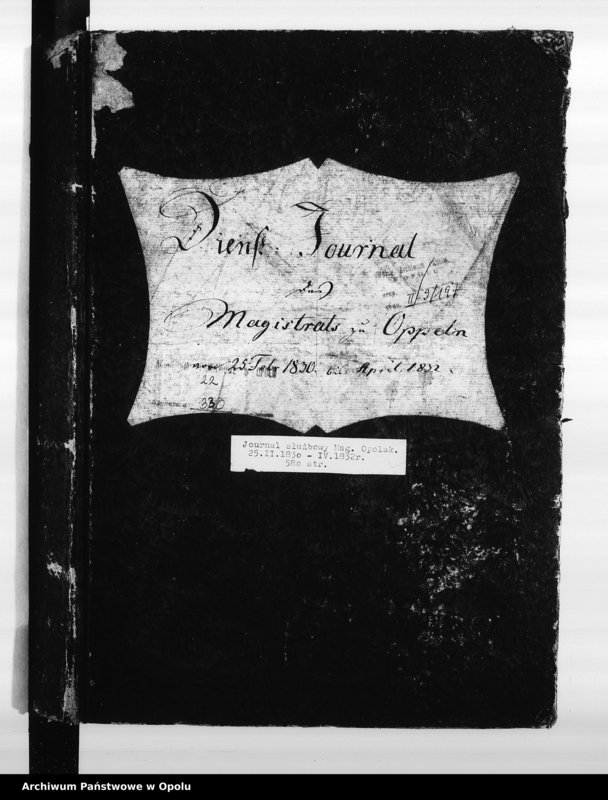 Dienst Journal
des
II/9/197
Magistrats zu Oppeln
vom 25 Febr 1830. bis April 1832.
22
330
Journal służbowy Mag. Opolsk.
25.II.183o - IV.1832r.
58o str.
Archiwum Państwowe w Opolu